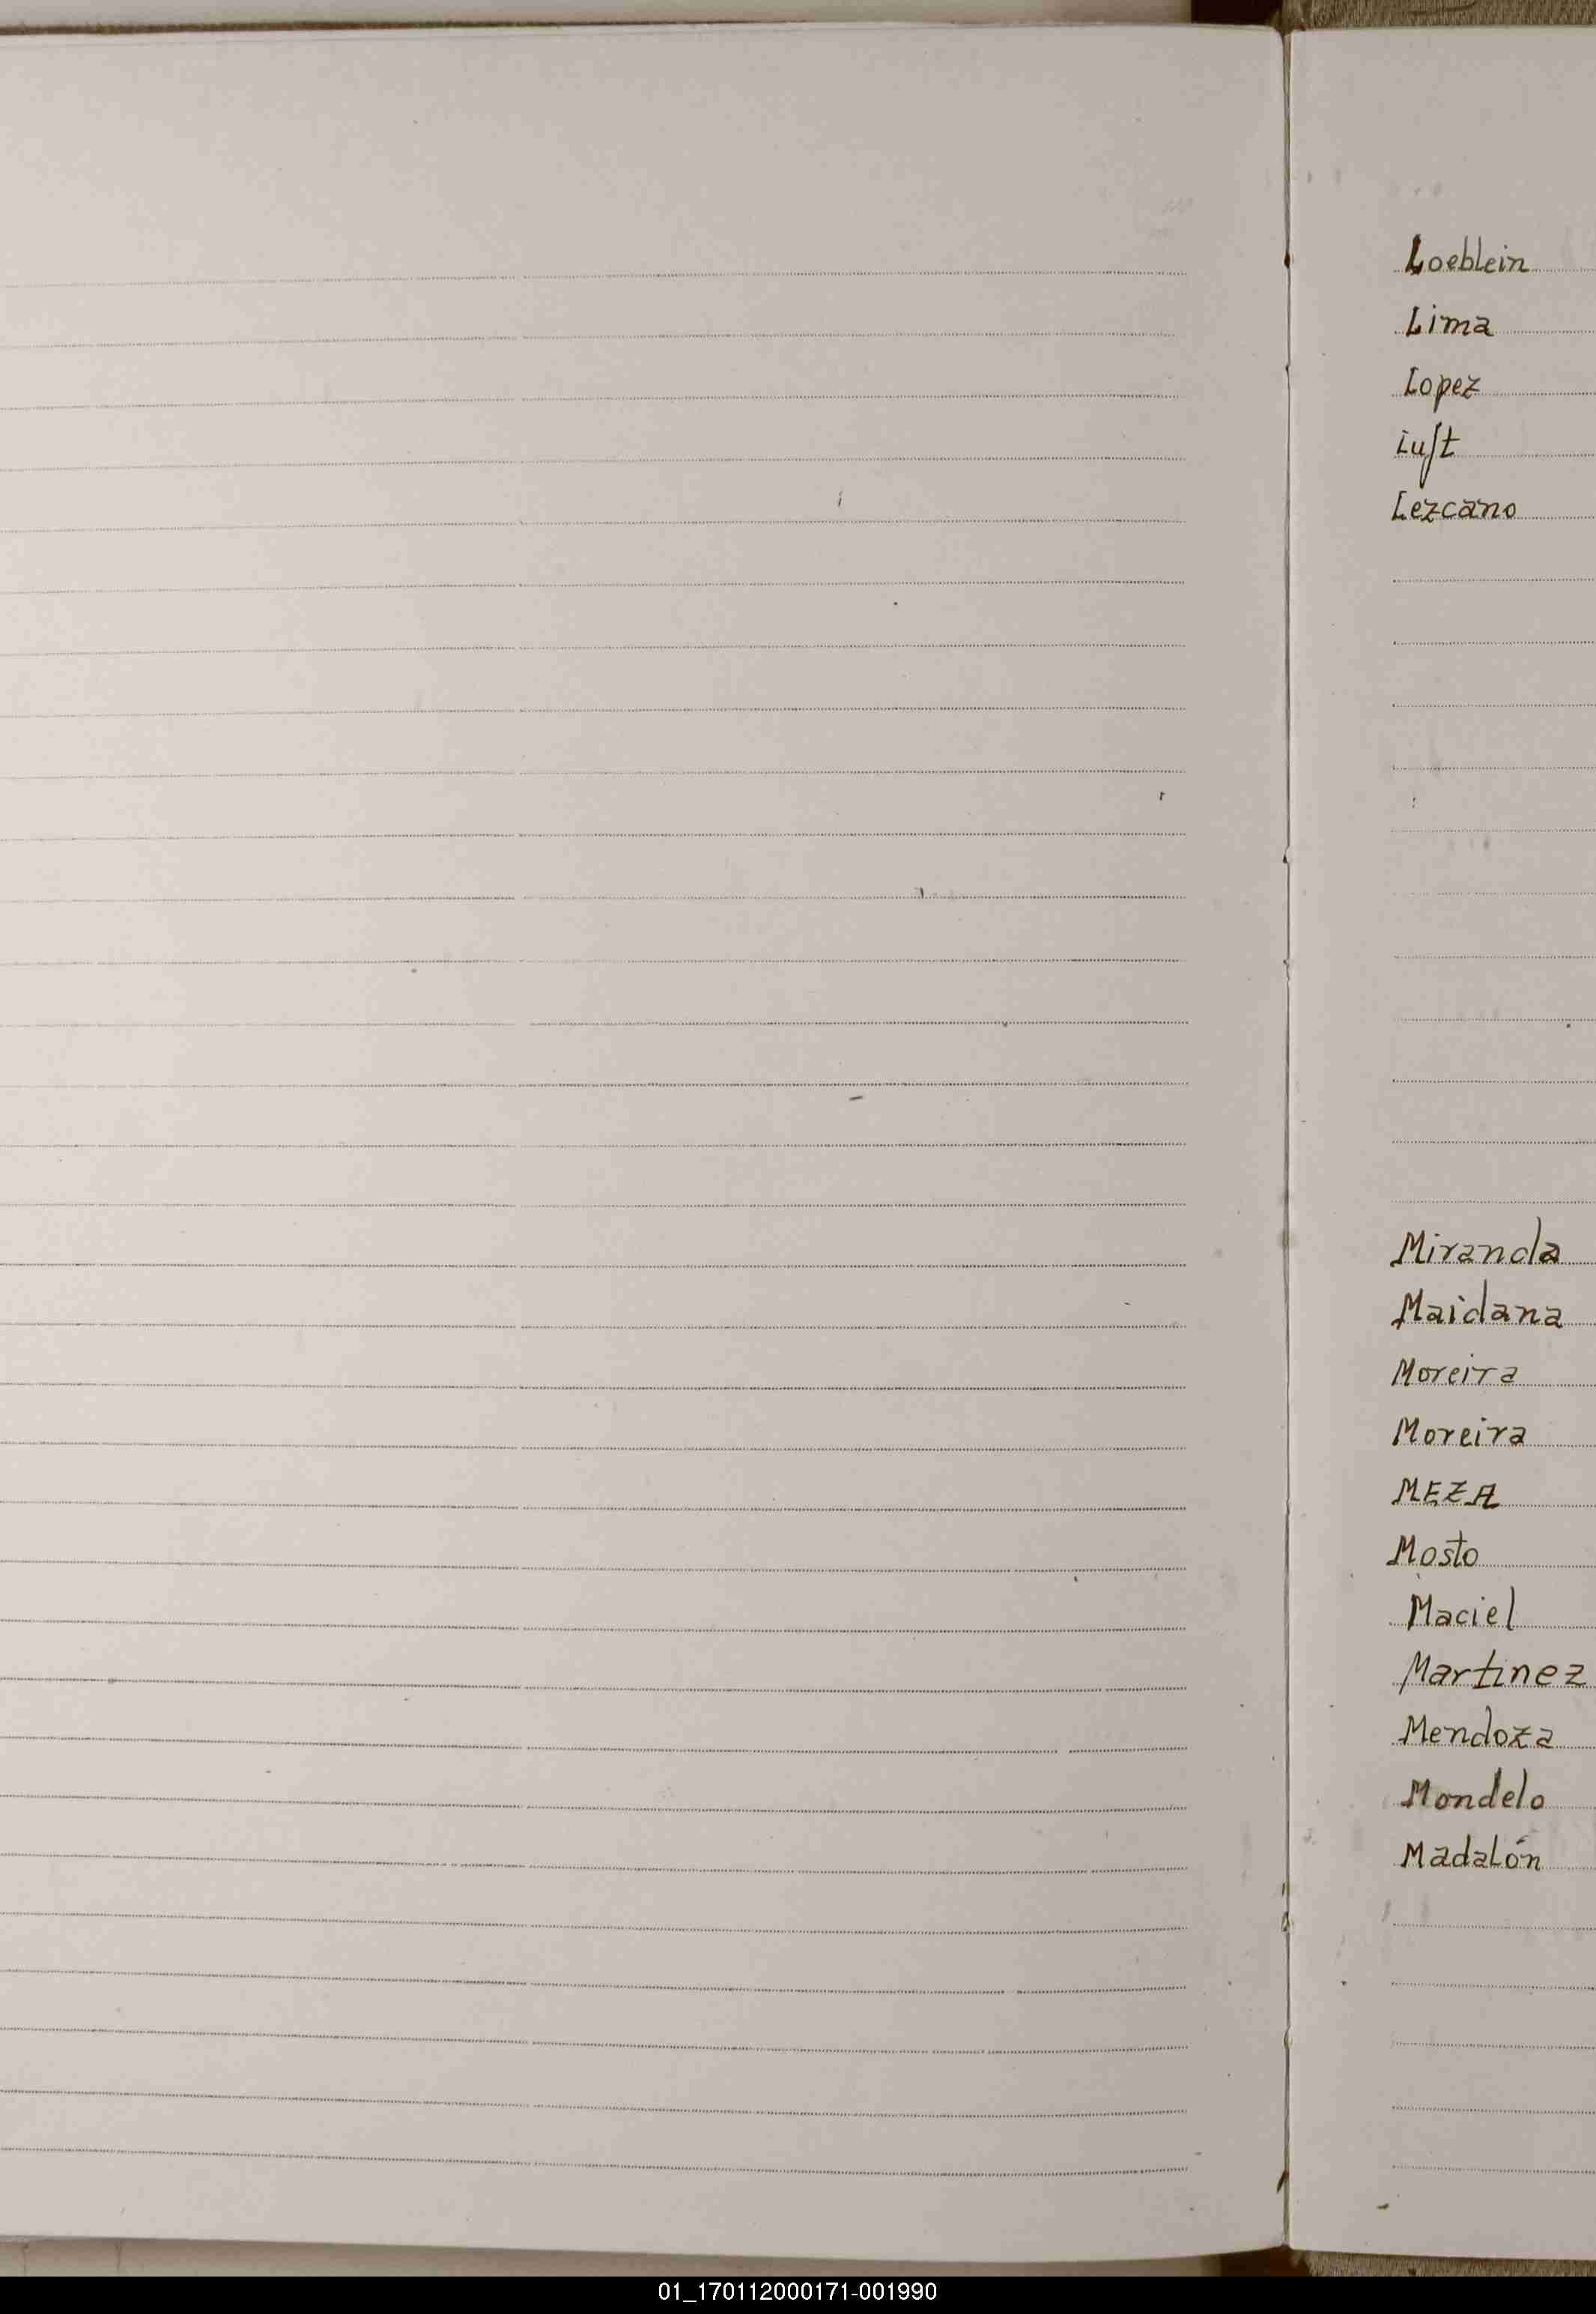 Loeblein
Lima
Lopez
Luft
Lezcano
Miranda
Maidana
Moreira
Moreira
MEZA
Mosto
Maciel
Martinez
Mendoza
Mondelo
Madalón
01_170112000171-001990